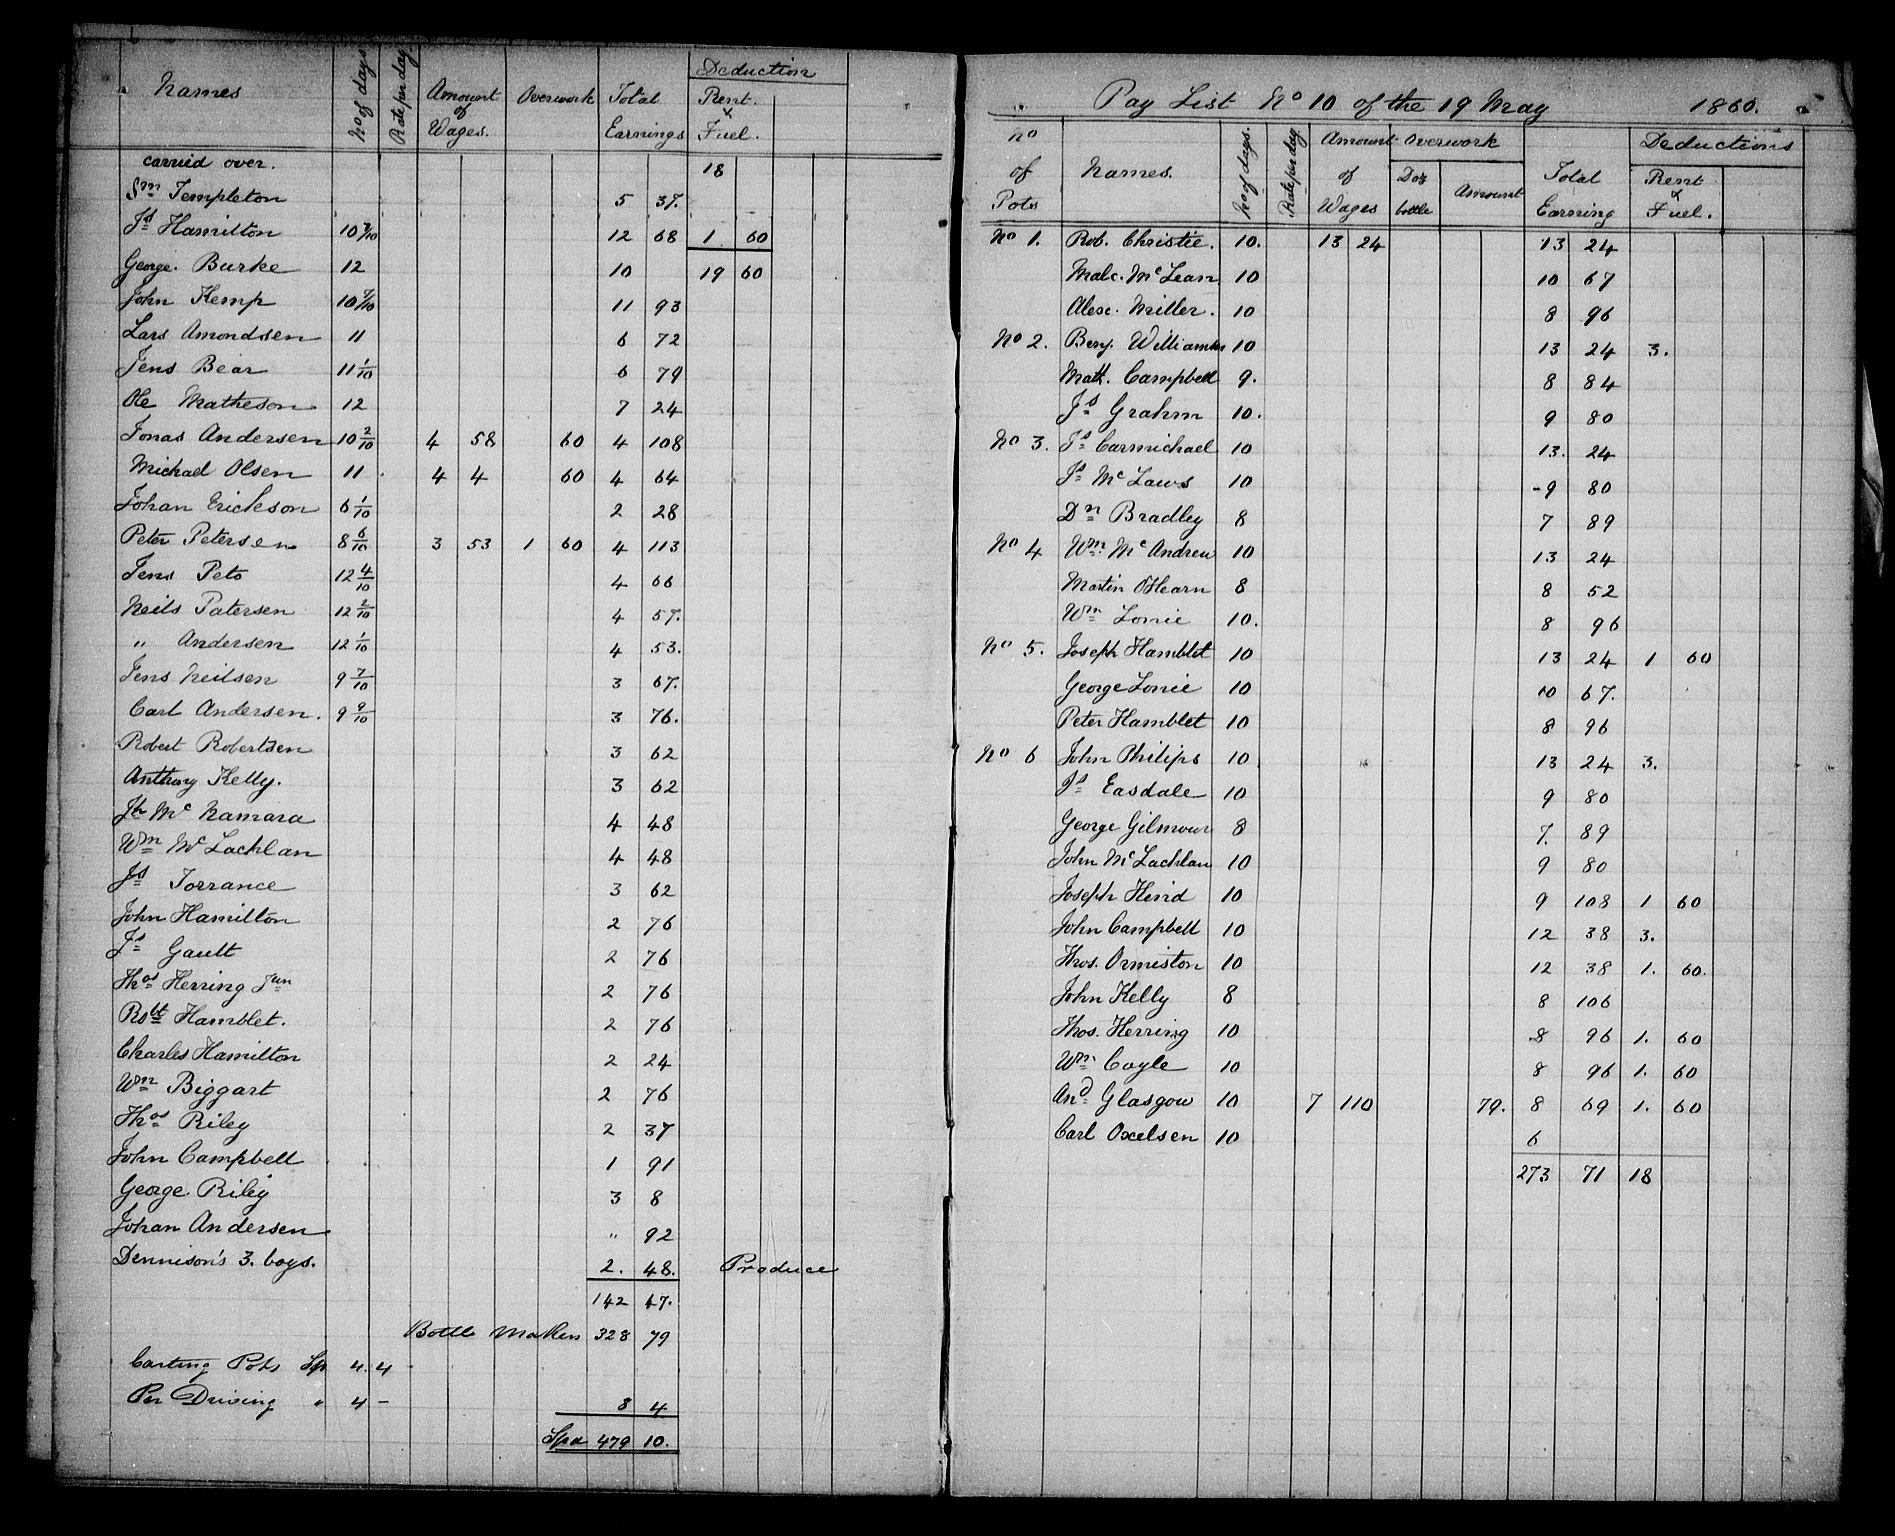 Names No of days Rate per day Amount of Wages. Overwork Total Earnings Deduction Rent & Fuel.
carried over. 18
Sm Templeton 5 37.
Js Hamilton 10 7/10 12 68 1 60
George Burke 12 10 19 60
John Kemp 10 7/10 11 93
Lars Amondsen 11 6 72
Jens Bear 11 1/10 6 79
Ole Matheson 12 7 24
Jonas Andersen 10 2/10 4 58 60 4 108
Michael Olsen 11 4 4 60 4 64
Johan Erickson 6 1/10 2 28
Peter Petersen 8 6/10 3 53 1 60 4 113
Jens Peto 12 4/10 4 66
Neils Patersen 12 2/10 4 57.
" Andersen 12 1/10 4 53.
Jens Neilsen 9 7/10 3 67.
Carl Andersen. 9 9/10 3 76.
Robert Robertsen 3 62
Anthony Kelly. 3 62
Jh Mc Namara 4 48
Wm Mc Lachlan 4 48
Js Torrance 3 62
John Hamilton 2 76
Js Gault 2 76
Thos Herring Jun 2 76
Robt Hamblet. 2 76
Charles Hamilton 2 24
Wm Biggart 2 76
Thos Riley 2 37
John Campbell 1 91
George Riley 3 8
Johan Andersen " 92
Dennison's 3. boys. 2. 48. Produce
142 47.
Bottle Makers 328 79
Carting Pots Sp 4. 4
Per Driving " 4 -
8 4
Spd 479 10.
Pay List No 10 of the 19 May 1860.
No of Pots Names. No of days. Rate per day. Amount of Wages Overwork Doz bottle Amount Total Earning Deductions Rent & Fuel.
No 1. Rob. Christie. 10. 13 24 13 24
Malc. Mc Lean 10 10 67
Alex. Miller. 10 8 96
No 2. Benj. Williams 10 13 24 3.
Matt. Campbell 9. 8 84
Js Grahm 10. 9 80
No 3. Js Carmichael 10 13. 24
Js Mc Laws 10 9 80
Dn Bradley 8 7 89
No 4 Wm. Mc Andrew 10 13 24
Martin OHearn 8 8 52
Wm Lonie 10. 8 96
No 5. Joseph Hamblet 10 13 24 1 60
George Lonie 10 10 67.
Peter Hamblet 10 8 96
No 6 John Philips 10 13 24 3.
Js Easdale 10 9 80
George Gilmour 8 7. 89
John Mc Lachlan 10 9 80
Joseph Hind 10 9 108 1 60
John Campbell 10 12 38 3.
Thos. Ormiston 10 12 38 1. 60.
John Kelly 8 8 106
Thos. Herring 10 8 96 1. 60
Wm. Coyle 10 8 96 1. 60
And Glasgow 10 7 110 79. 8 69 1. 60
Carl Oxelsen 10 6
273 71 18